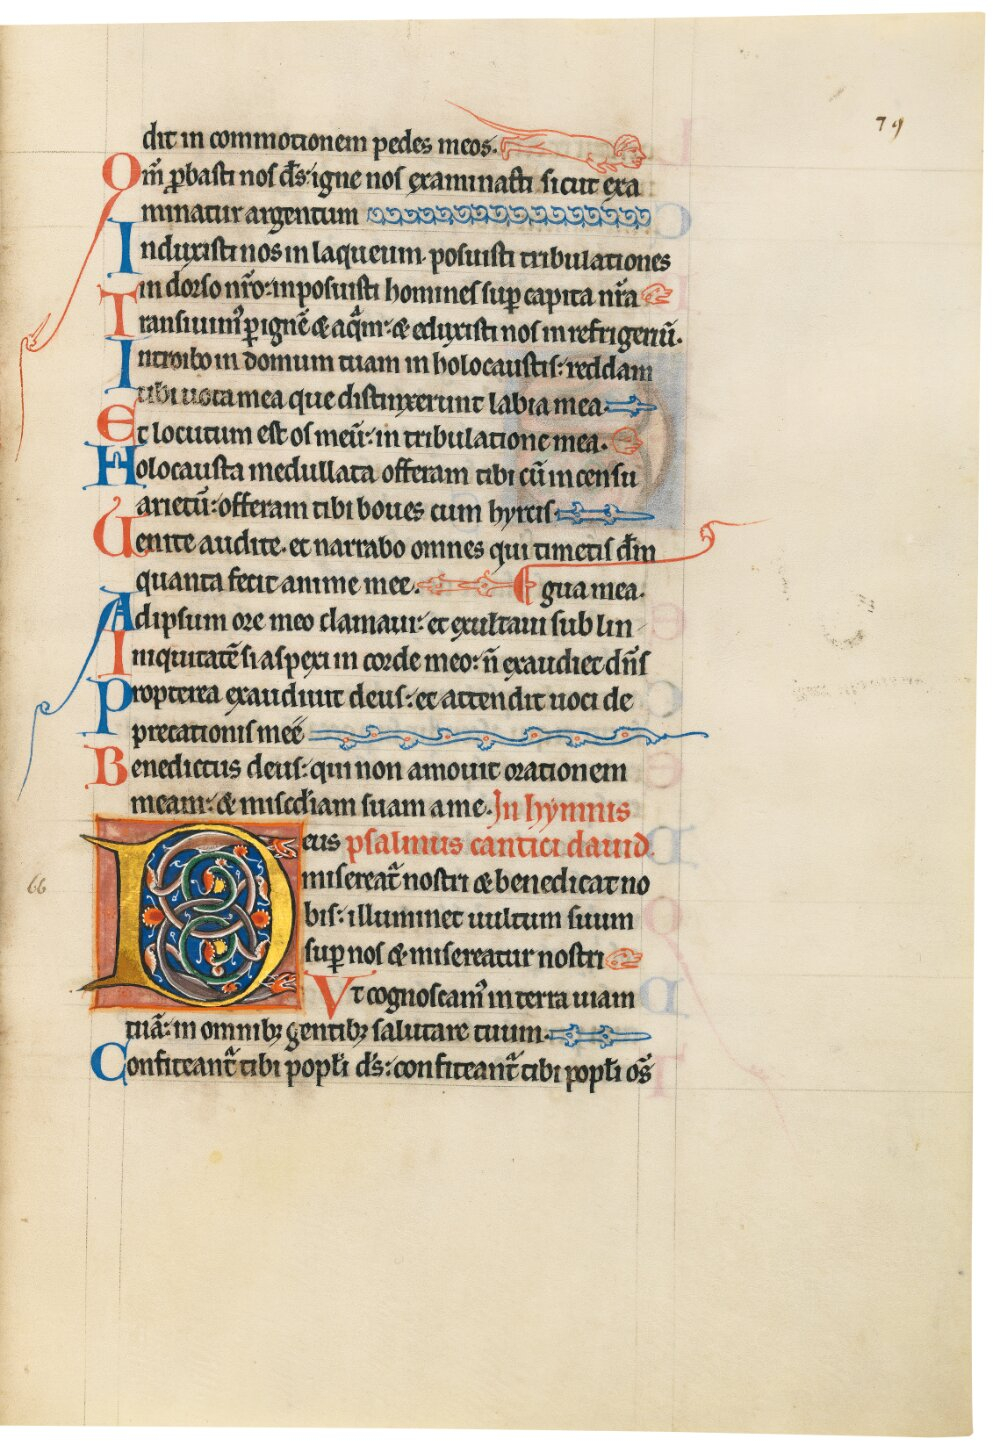 79
dit in commotionem pedes meos.
Qm̄ ꝓbasti nos ds̄: igne nos examinasti sicut exa
minatur argentum
Induxisti nos in laqueum. posuisti tribulationes
in dorso nr̄o: inposuisti homines suꝑ capita nr̄a
Transiuimꝰ ꝑ ignē & aq̄m: & eduxisti nos in refrigeriū.
Introibo in domum tuam in holocaustis: reddam
tibi uota mea que distinxerunt labia mea
Et locutum est os meū: in tribulatione mea.
Holocausta medullata offeram tibi cū incensu
arietū: offeram tibi boues cum hyrcis
Uenite audite. et narrabo omnes qui timetis dm̄
quanta fecit anime mee. gua mea.
Ad ipsum ore meo clamaui: et exultaui sub lin
Iniquitatē si aspexi in corde meo: n̄ exaudiet dn̄s
Propterea exaudiuit deus: et attendit uoci de
precationis mee
Benedictus deus: qui non amouit orationem
meam: & misc̄diam suam a me. In hymnis
Deus psalmus cantici dauid.
66
misereat᷑ nostri & benedicat no
bis: illuminet uultum suum
suꝑ nos & misereatur nostri
Vt cognoscamꝰ in terra uiam
tuā: in omnibꝫ gentibꝫ salutare tuum.
Confiteant᷑ tibi popl̄i ds̄: confiteant᷑ tibi popl̄i os̄